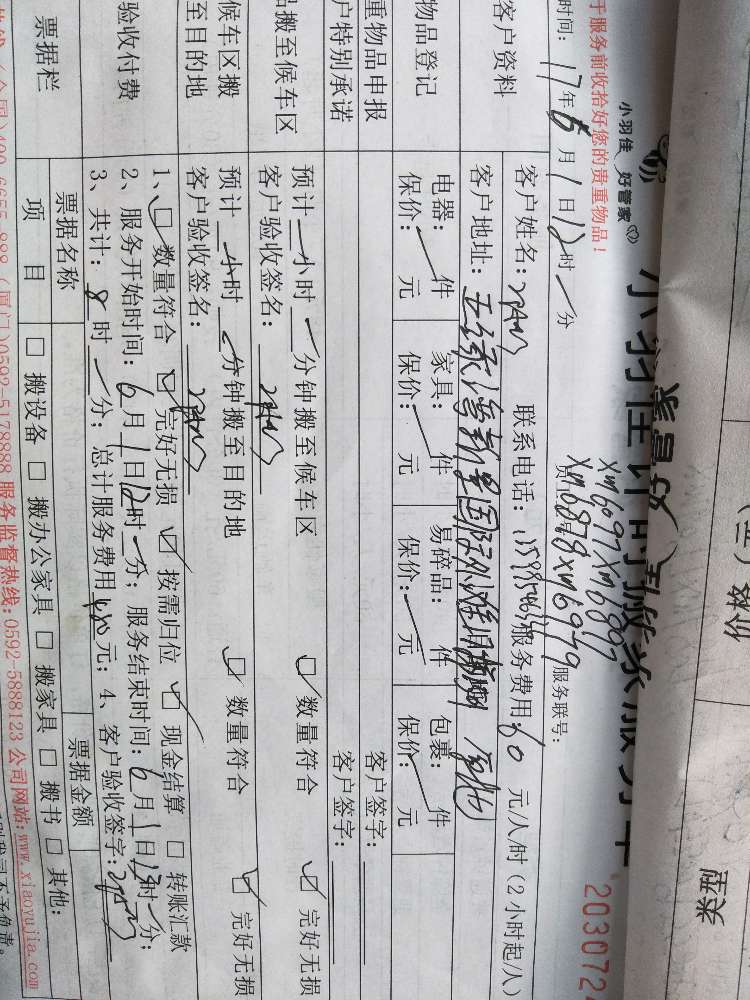 价格（元
类型
小羽佳
好管家
小羽佳计时搬家服务单
2030724
于服务前收拾好您的贵重物品！
XM6097 XM6899
XM6878 XM6979
时间：17年6月1日12时一分
服务联号：
客户资料
客户姓名：
联系电话：
服务费用：60元/人/时（2小时起/人）
客户地址：
物品登记
电器：一件
家具：一件
易碎品：一件
包裹：一件
保价：元
保价：元
保价：元
保价：元
重物品申报
客户签字：
户特别承诺
客户签字：
品搬至候车区
预计一小时一分钟搬至候车区
数量符合
完好无损
客户验收签名：
候车区搬
至目的地
预计一小时一分钟搬至目的地
数量符合
完好无损
客户验收签名：
验收付费
1、数量符合 完好无损 按需归位 现金结算 转账汇款
2、服务开始时间：6月1日12时一分；服务结束时间：6月1日13时一分；
3、共计：8时一分；总计服务费用480元；4、客户验收签字：
票据栏
票据名称
票据金额
项目
搬设备 搬办公家具 搬家具 搬书 其他：
热线（全国）400-6655-888（厦门）0592-5178888 服务监督热线：0592-5888123 公司网站：www.xiaoyujia.com